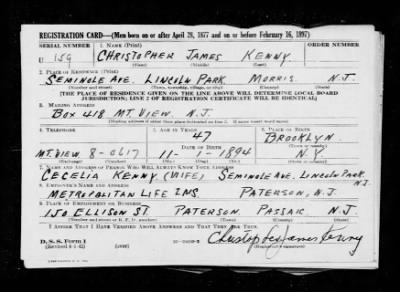 REGISTRATION CARD—(Men born on or after April 28, 1877 and on or before February 16, 1897)
SERIAL NUMBER 1. NAME (Print) ORDER NUMBER
U 159 CHRISTOPHER JAMES KENNY
(First) (Middle) (Last)
2. PLACE OF RESIDENCE (Print)
SEMINOLE AVE. LINCOLN PARK MORRIS N.J.
(Number and street) (Town, township, village, or city) (County) (State)
[THE PLACE OF RESIDENCE GIVEN ON THE LINE ABOVE WILL DETERMINE LOCAL BOARD
JURISDICTION; LINE 2 OF REGISTRATION CERTIFICATE WILL BE IDENTICAL]
3. MAILING ADDRESS
BOX 418 MT. VIEW N.J.
[Mailing address if other than place indicated on line 2. If same insert word same]
4. TELEPHONE 5. AGE IN YEARS 6. PLACE OF BIRTH
47 BROOKLYN
DATE OF BIRTH (Town or county)
MT. VIEW 8-0617 11- 1- 1894 N.Y.
(Exchange) (Number) (Mo.) (Day) (Yr.) (State or country)
7. NAME AND ADDRESS OF PERSON WHO WILL ALWAYS KNOW YOUR ADDRESS
CECELIA KENNY (WIFE) SEMINOLE AVE. LINCOLN PARK N.J.
8. EMPLOYER'S NAME AND ADDRESS
METROPOLITAN LIFE INS PATERSON, N.J.
9. PLACE OF EMPLOYMENT OR BUSINESS
150 ELLISON ST. PATERSON PASSAIC N.J.
(Number and street or R. F. D. number) (Town) (County) (State)
I AFFIRM THAT I HAVE VERIFIED ABOVE ANSWERS AND THAT THEY ARE TRUE.
D. S. S. Form 1
(Revised 4-1-42) (over) Christopher James Kenny
(Registrant's signature)